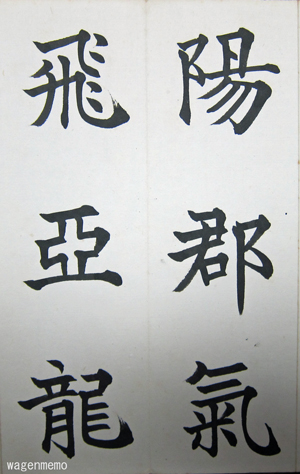 陽郡氣
飛亞龍
wagenmemo